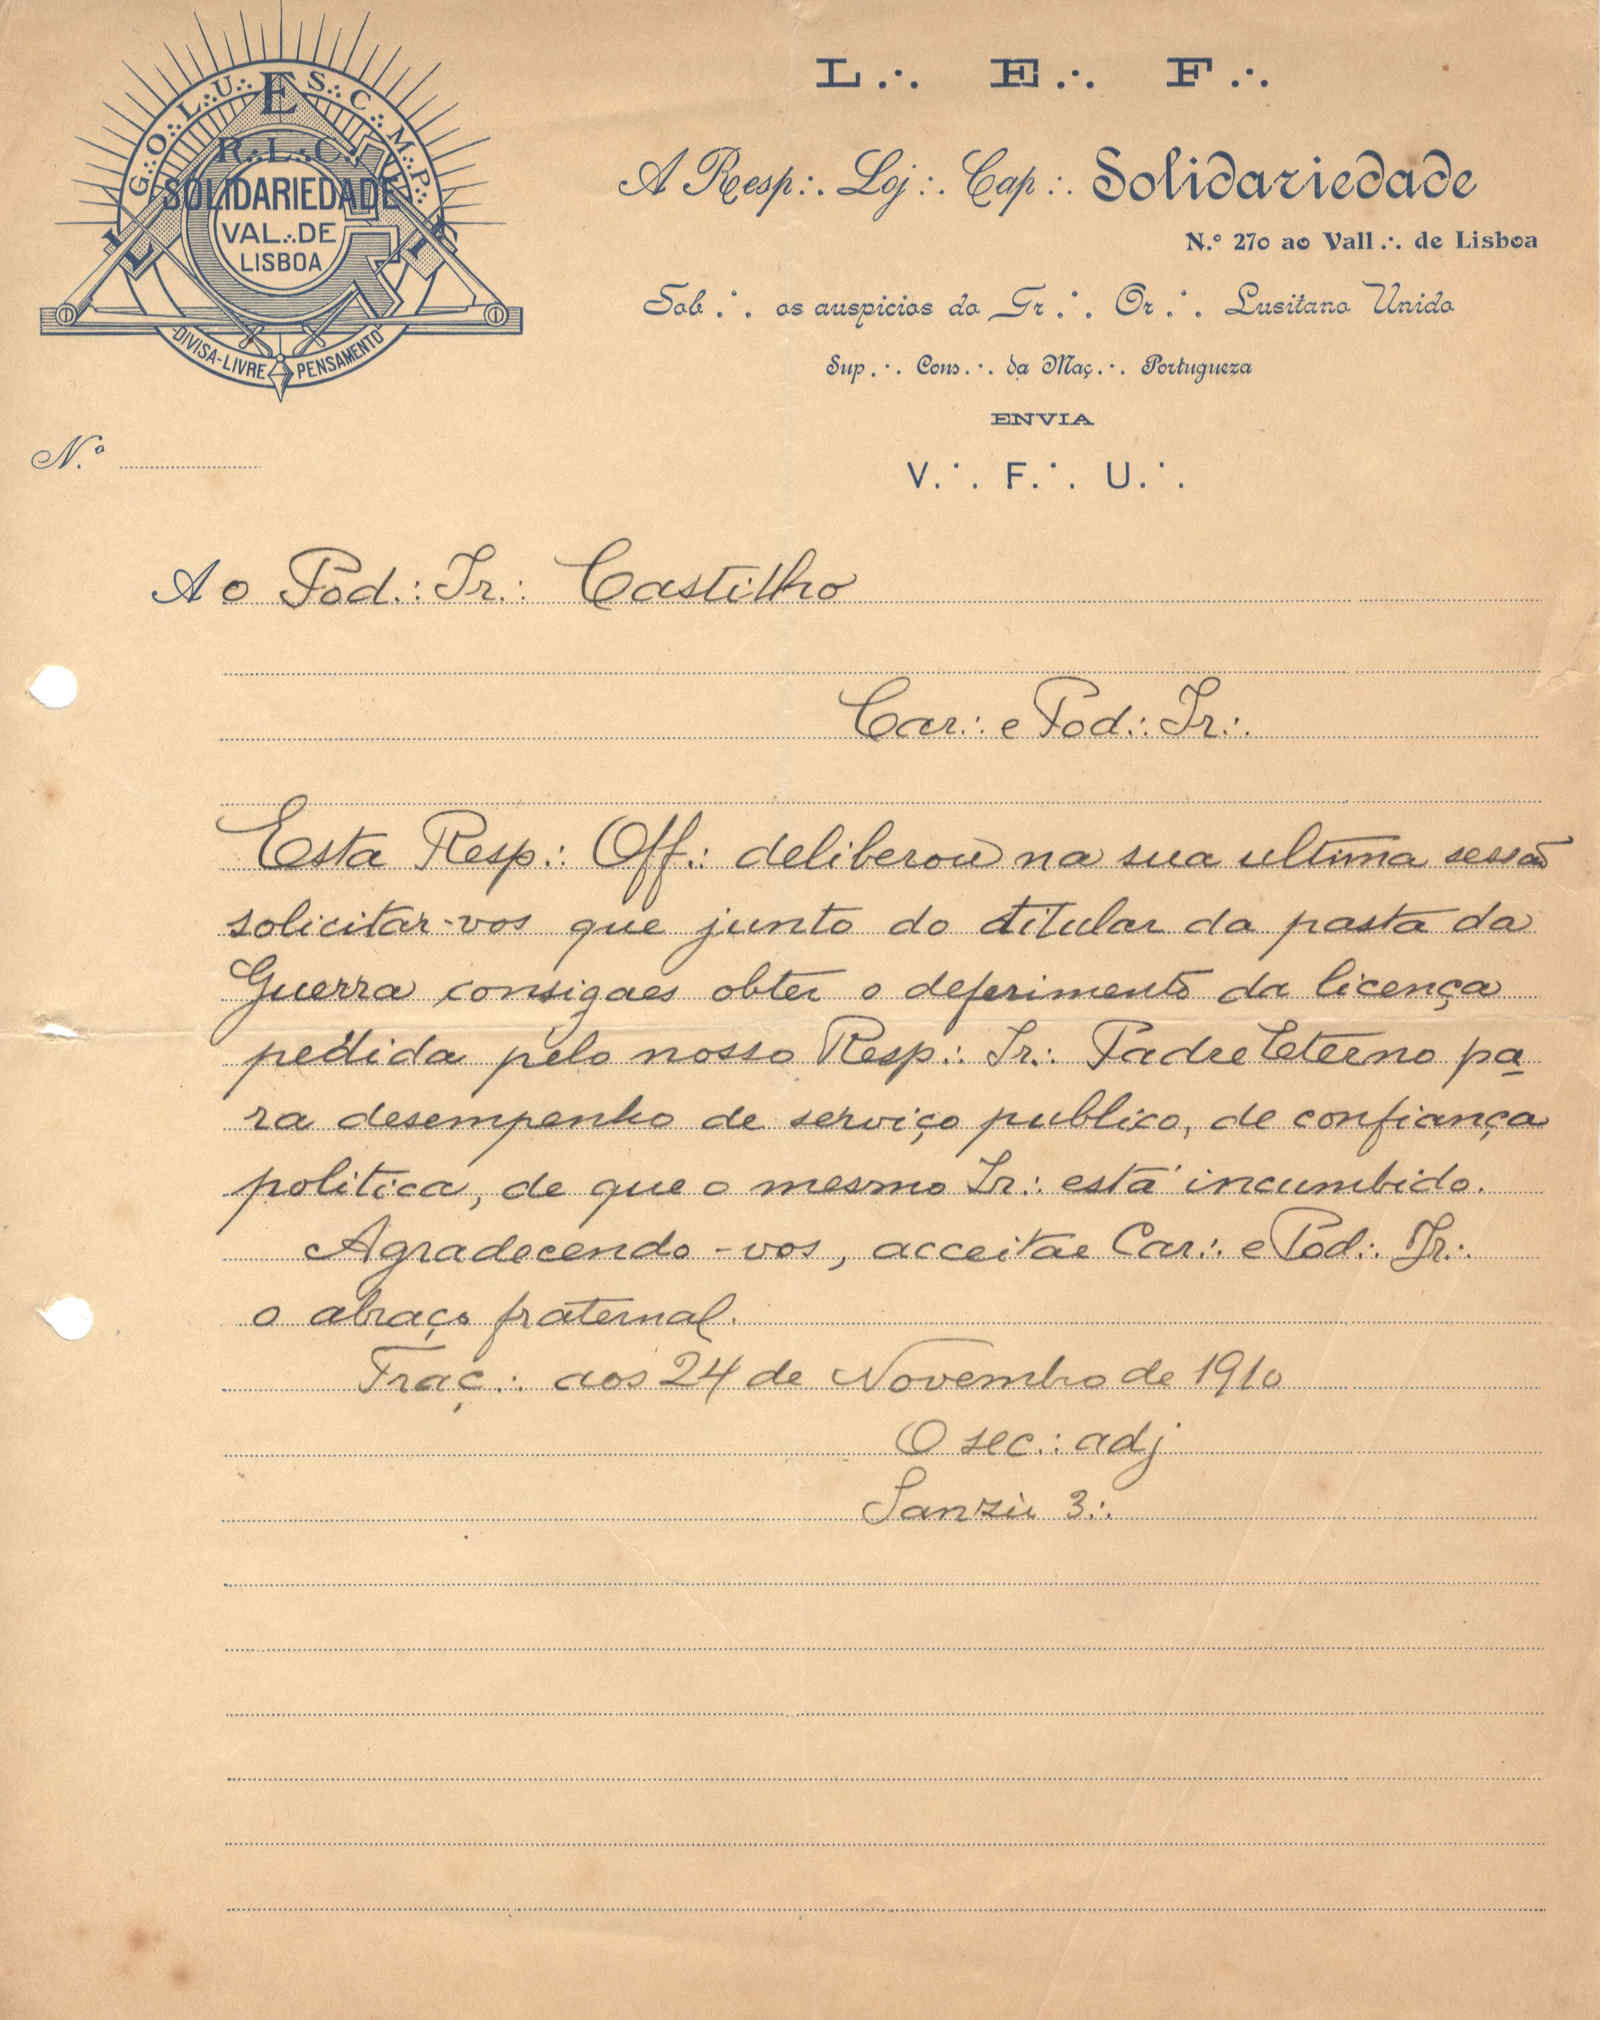 G∴O∴L∴U∴S∴C∴M∴P∴
L E F
R∴L∴C∴
SOLIDARIEDADE
VAL∴DE
LISBOA
DIVISA-LIVRE PENSAMENTO
L∴ E∴ F∴
A Resp∴ Loj∴ Cap∴ Solidariedade
N.º 270 ao Vall∴ de Lisboa
Sob∴ os auspicios do Gr∴ Or∴ Lusitano Unido
Sup∴ Cons∴ da Maç∴ Portugueza
ENVIA
N.º
V∴ F∴ U∴
Ao Pod∴ Ir∴ Castilho
Car∴ e Pod∴ Ir∴
Esta Resp∴ Off∴ deliberou na sua ultima sessão
solicitar-vos que junto do titular da pasta da
Guerra consigaes obter o deferimento da licença
pedida pelo nosso Resp∴ Ir∴ Padre Eterno pa
ra desempenho de serviço publico, de confiança
politica, de que o mesmo Ir∴ está incumbido.
Agradecendo-vos, acceitae Car∴ e Pod∴ Ir∴
o abraço fraternal.
Traç∴ aos 24 de Novembro de 1910
O sec∴ adj
3∴